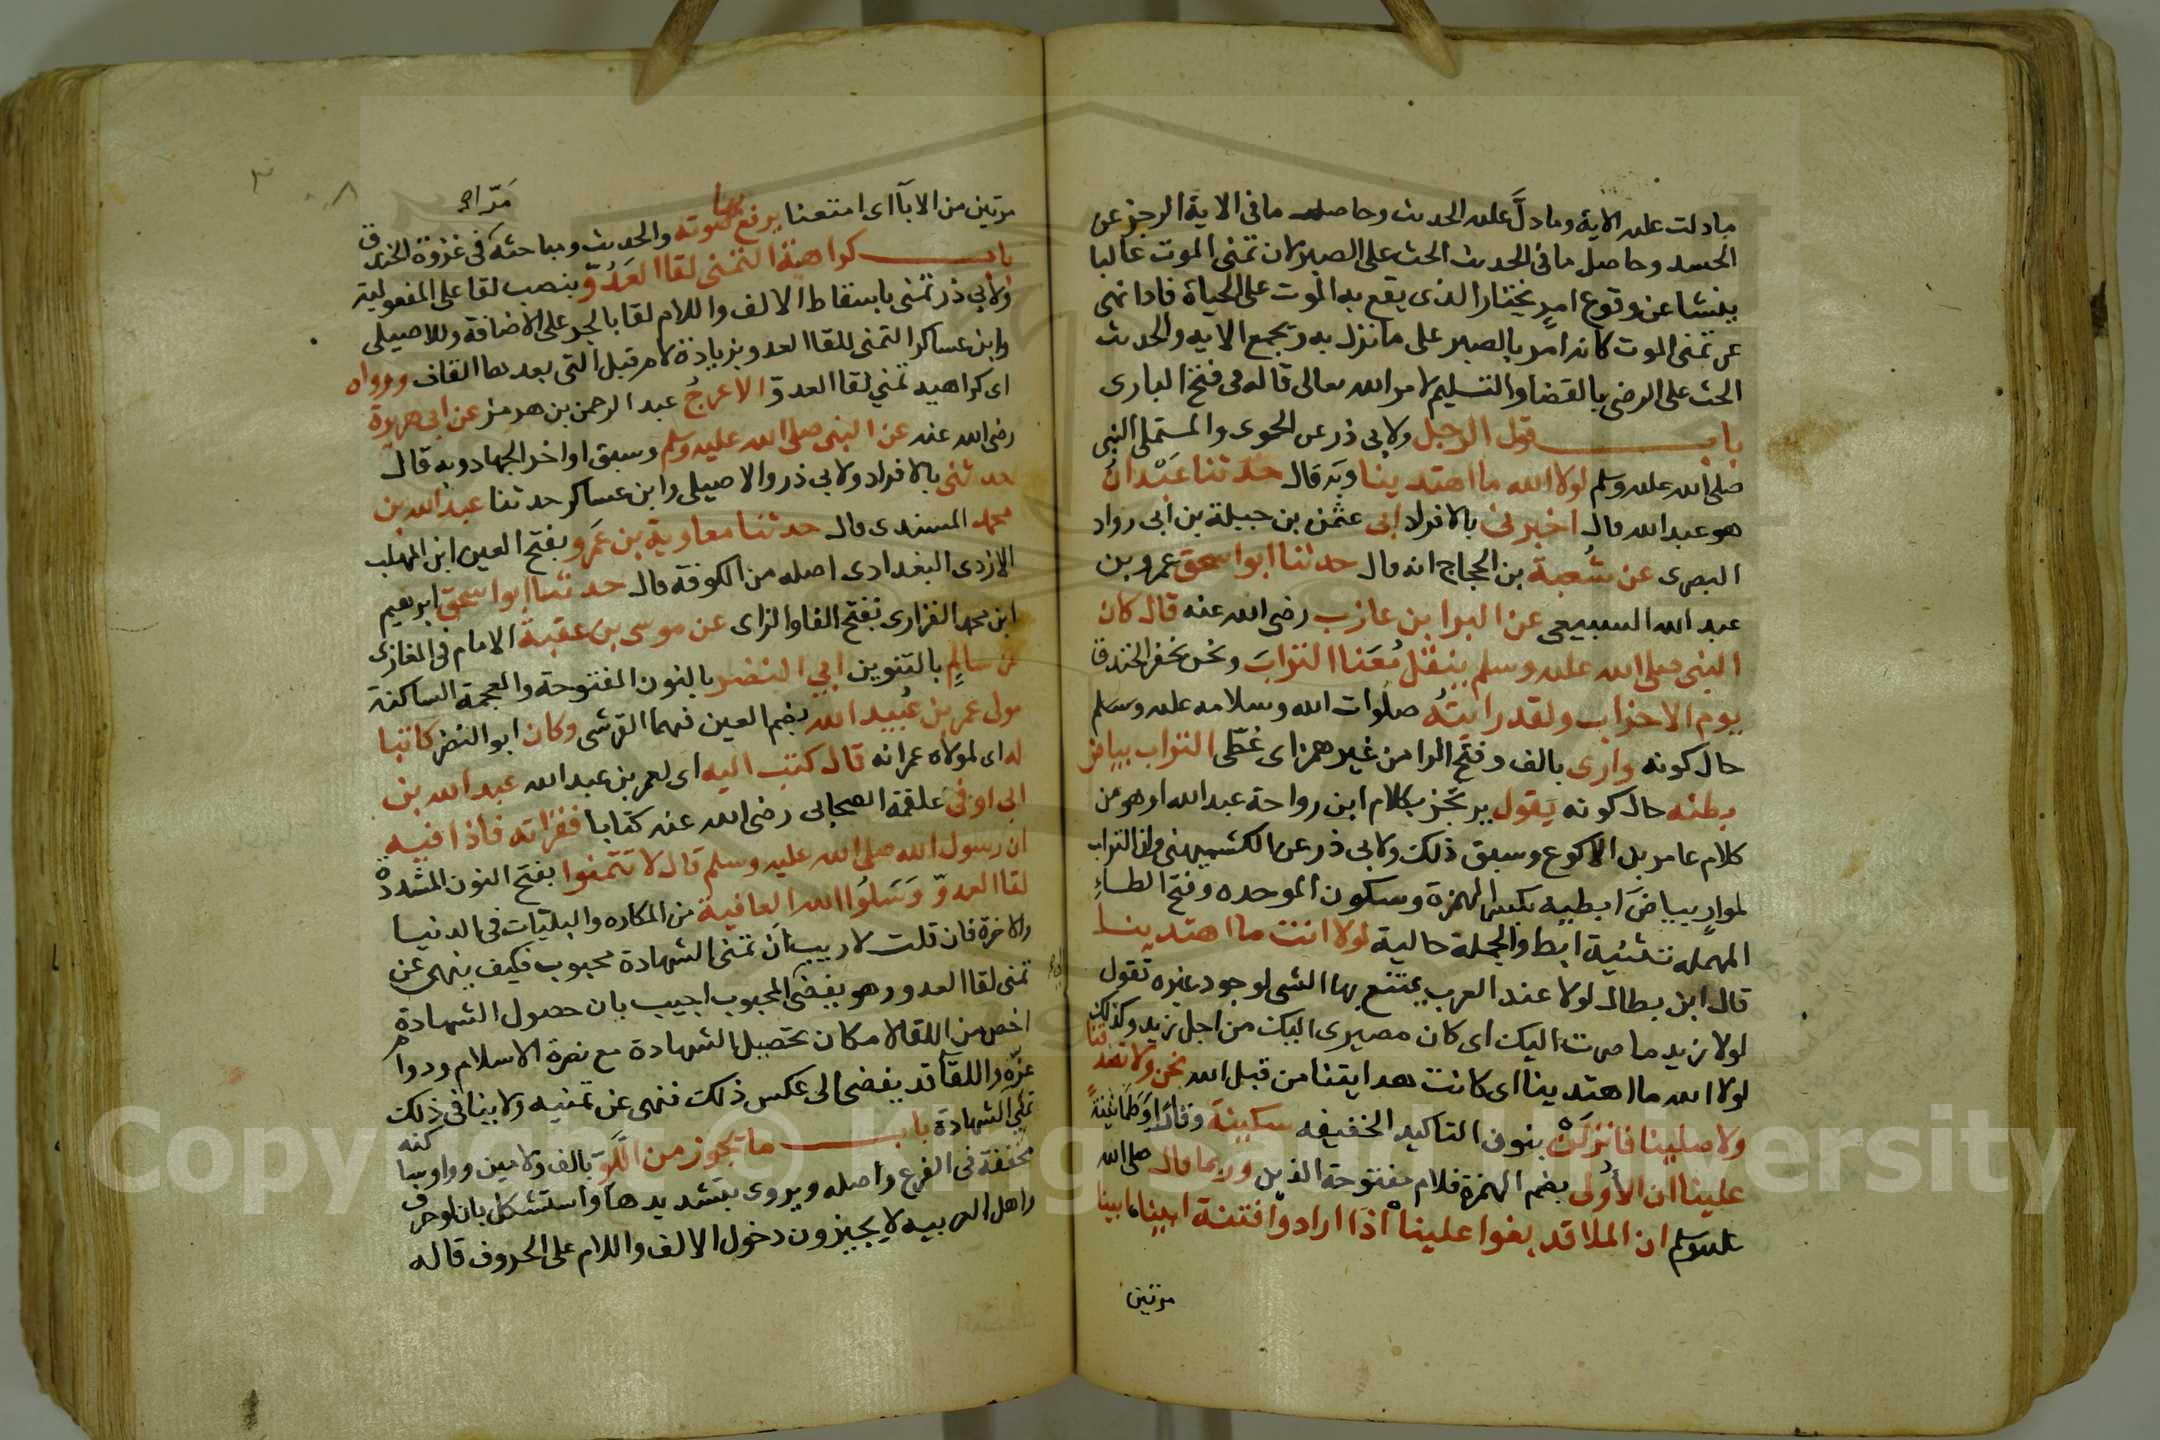 مادلت عليه الاية ومادلَّ عليه الحديث وحاصله مافى الاية الزجر عن
الحسد وحاصل مافى الحديث الحث على الصبر لان تمنى الموت غالبا
ينشا عن وقوع امرٍ يختار الذى يقع به الموت على الحياة فاذا نهى
عن تمنى الموت كانه امر بالصبر على مانزل به ويجمع الايه والحديث
الحث على الرضى بالقضا والتسليم لامر الله تعالى قاله فى فتح البارى
باب قول الرجل ولابى ذر عن الحموى والمستملى النبى
صلى الله عليه وسلم لولا الله ما اهتدينا وبه قال حدثنا عَبْدانُ
هو عبد الله قال اخبرنى بالافراد ابى عثمن بن جبلة بن ابى رواد
البصرى عن شُعبة بن الحجاج انه قال حدثنا ابو اسحق عمرو بن
عبد الله السبيعى عن البرا بن عازب رضى الله عنه قال كان
النبى صلى الله عليه وسلم ينقُل مَعَنا الترابَ ونحن نحفر الخندق
يوم الاحزاب ولقد رايتُه صلوات الله وسلامه عليه وسلم
حال كونه وارَى بالف وفتح الرا من غير همز اى غطّى التراب بياض
بطنه حال كونه يقول يرتجز بكلام ابن رواحة عبد الله او هو من
كلام عامر بن الاكوع وسبق ذلك ولابى ذر عن الكشميهنى وان التراب
لموارٍ بياضَ ابطيه بكسر الهمزة وسكون الموحده وفتح الطاءِ
المهمله تثنية ابط والجملة حالية لولا انت ما اهتدينا
قال ابن بطال لولا عند العرب يمتنع بها الشى لوجود غيره تقول
لولا زيد ما صرت اليك اى كان مصيرى اليك من اجل زيد وكذلك
لولا الله ما اهتدينا اى كانت هدايتنا من قبل الله نحن ولا تصدقنا
ولا صلينا فانزلَنْ بنون التاكيد الخفيفه سكينة وقارًا وطمانينةً
علينا ان الأُولى بضم الهمزة فلام مفتوحة الذين وربما قال صلى الله
عليه وسلم ان الملا قد بغوا علينا اذا ارادوا فتنة ابينا ابينا
مرتين
مرتين من الابآ اى امتنعنا يرفع بها صوته والحديث ومباحثه فى غزوة الخندق
باب كراهية التمنى لقا العَدُوِّ بنصب لقا على المفعولية
ولابى ذر تمنى باسقاط الالف واللام لقا بالجر على الاضافة وللاصيلى
وابن عساكر التمنى للقا العدو بزيادة لام قبل التى بعدها القاف ورواه
اى كراهية تمني لقا العدوّ الاعرجُ عبد الرحمن بن هرمز عن ابى هريرة
رضى الله عنه عن النبى صلى الله عليه وسلم وسبق اواخر الجهاد وبه قال
حدثنى بالافراد ولابى ذر والاصيلى وابن عساكر حدثنا عبد الله بن
محمد المسندى قال حدثنا معاوية بن عَمرو بفتح العين ابن المهلب
الازدى البغدادى اصله من الكوفة قال حدثنا ابو اسحق ابرهيم
ابن محمد الفزارى بفتح الفا والزاى عن موسى بن عقبة الامام فى المغازى
عن سالمٍ بالتنوين ابي النضر بالنون المفتوحة والمعجمة الساكنة
مولى عمر بن عُبيد الله بضم العين فيهما القرشى وكان ابو النضر كاتبا
له اى لمولاه عمر انه قال كتب اليه اى لعمر بن عبد الله عبد الله بن
ابى اوفى علقمة الصحابى رضى الله عنه كتابا فقرأته فاذا فيه
ان رسول الله صلى الله عليه وسلم قال لا تتمنوا بفتح النون المشددة
لقا العدوِّ وَسَلُوا الله العافية من المكاره والبليّات فى الدنيا
والاخرة فان قلت لا ريب ان تمنى الشهادة محبوب فكيف ينهى عن
تمنى لقا العدو وهو يفضى المحبوب اجيب بان حصول الشهادة
اخص من اللقا لامكان تحصيل الشهادة مع نصرة الاسلام ودوام
عزّه واللقا قد يفضى الى عكس ذلك فنهى عن تمنيه ولا ينافى ذلك
تمنى الشهادة باب ما يجوز من اللَّوِّ بالف ولامين وواو ساكنه
مخففة فى الفرع واصله ويروى بتشديدها واستشكل بان لو حرف
واهل العربيه لا يجيزون دخول الالف واللام على الحروف قاله
Copyright © King Saud University